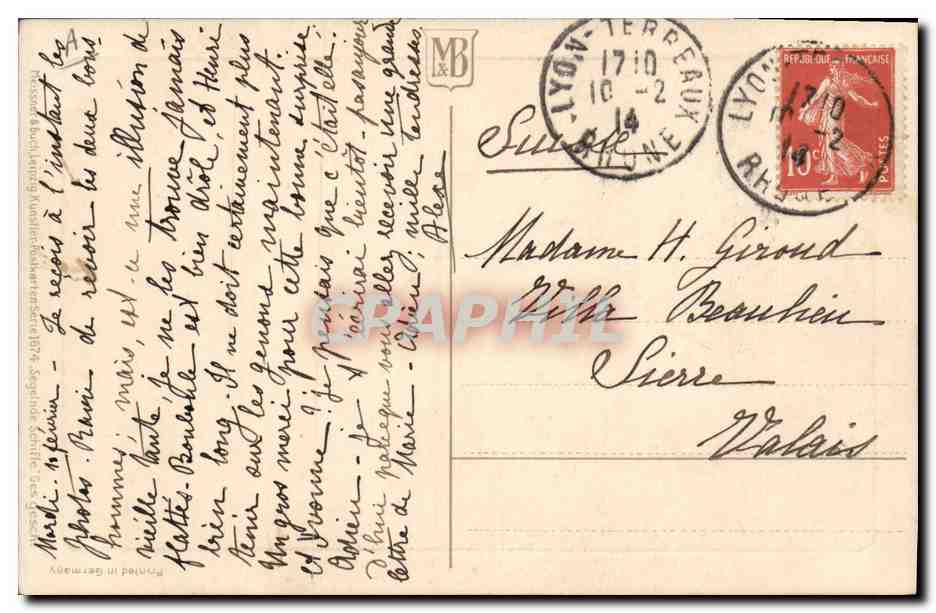 Mardi - février - Je reçois à l'instant les
photos. Ravie de revoir les deux bons-
hommes, mais, est-ce une illusion de
vieille tante, je ne les trouve jamais
flattés - Bouboule est bien drôle, et Henri
bien long - Il ne doit certainement plus
tenir sur les genoux maintenant
Un gros merci pour cette bonne surprise
et Yvonne ? je pensais que c'était elle.
Adrien - Je t'écrirai bientôt - pensais
que vous allez recevoir une grande
lettre de Marie - Adieu, mille tendresses
Alexe
A
M&B
Meissner & Buch, Leipzig Künstler-Postkarten Serie 1674. Segelnde Schiffe. Ges. gesch.
Printed in Germany
LYON-TERREAUX
1710
10-2
14
RHONE
LYON-TE
1710
10-2
14
RHONE
REPUBLIQUE FRANÇAISE
10c
POSTES
Suisse
Madame H. Giroud
Villa Beaulieu
Sierre
Valais
CPAPHIL